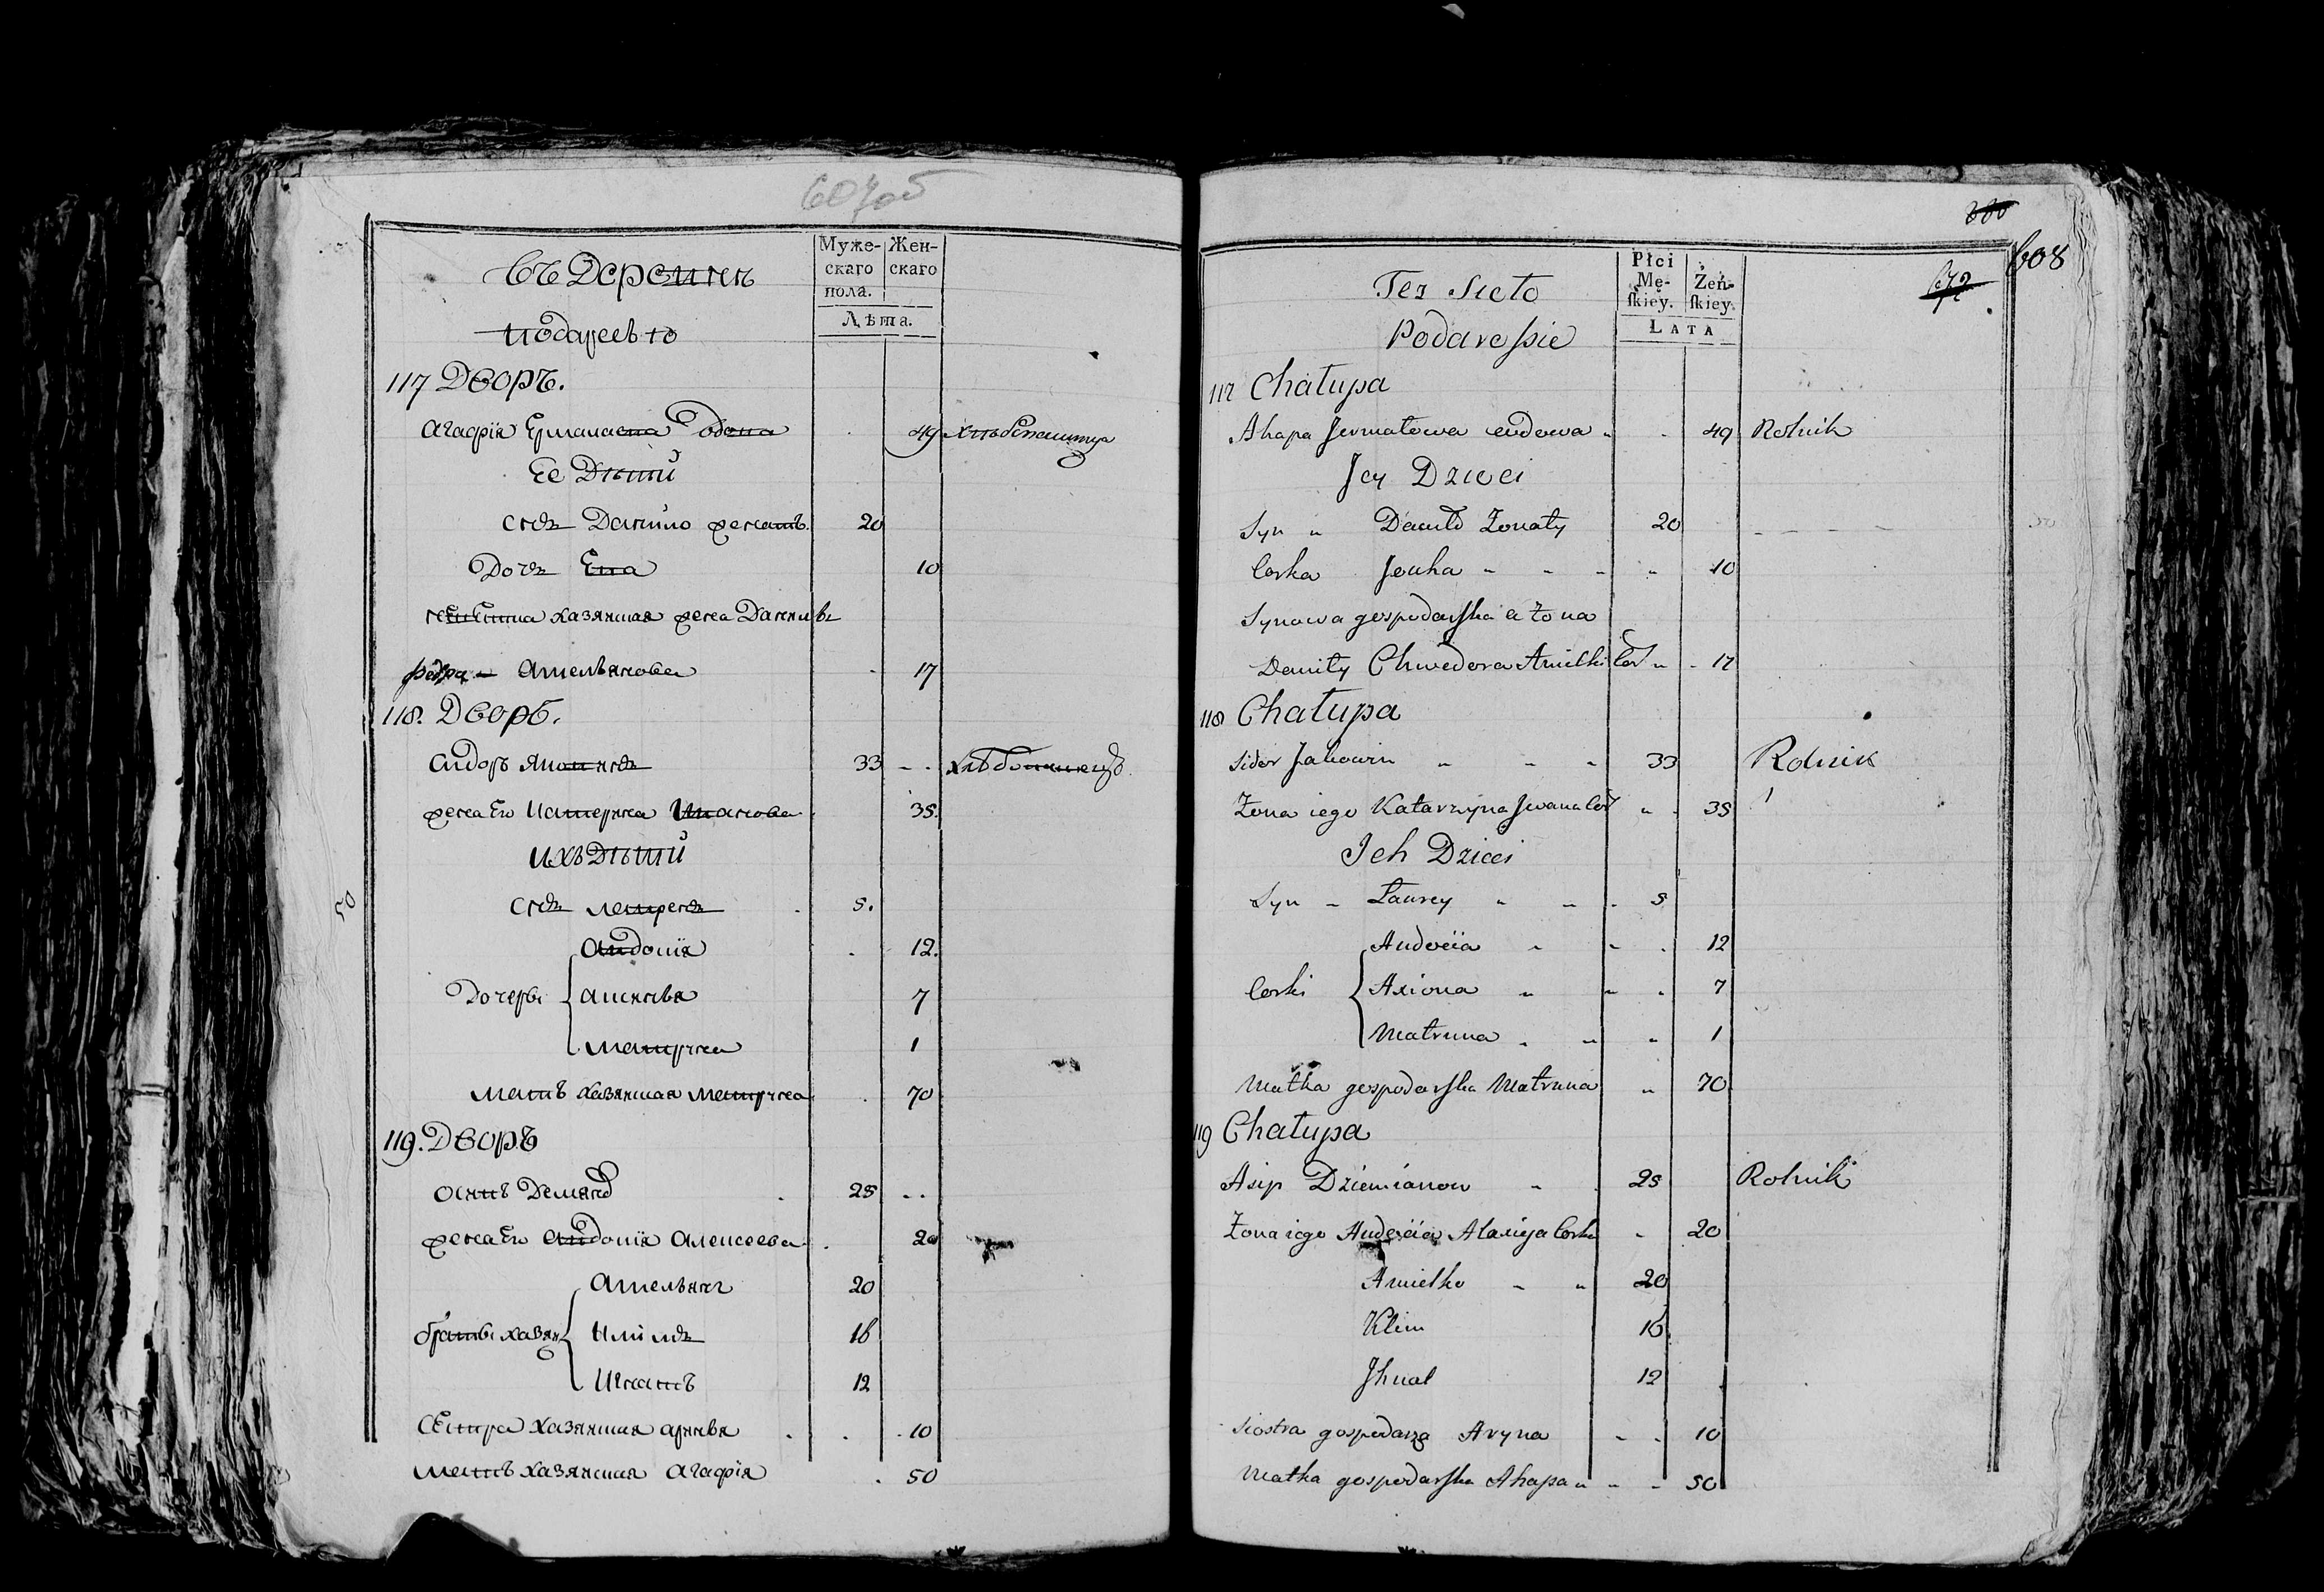 607об
въ Деревнѣ
Подаресье
Муже-
скаго
пола.
Жен-
скаго
Лѣта.
117 Дворъ.
Агафія Ермалаева Вдова 49
Ее Дѣти
Снъ Данило женатъ. 20
Дочь 10
хазяиная жена Данилы
Амельянова 17
118. Дворъ.
Сидоръ 33
жена Его Катерина Иванова 35.
Ихъ Дѣти
Снъ 5.
Авдотія 12.
Дочеры 7
Матруна 1
Мать хазяиная Матруна 70
119. Дворъ
Осипъ 25
жена Его Авдотія Алексеева 20
Амельянъ 20
браты хазяи Климъ 16
Игнатъ 12
Сестра хазяиная аринья 10
Мать хазяиная Агафія 50
50
608
672
Tez Sieło
Podaresſie
Płci
Mę-
ſkiey.
Żeń-
ſkiey.
LATA
117 Chałupa
Ahapa Jermałowa wdowa 49 Rolnik
Jey Dzieci
Syn „ Daniło Żonaty 20
Corka 10
Synowa gospodarſka a żona
Daniły Chwedora Amielki Cor 17
118 Chałupa
Sidor Jakowin 33 Rolnik
Żona iego Katarzyna Jwana Cor 35
Ich Dzieci
Syn Ławrey 5
Audocia 12
Corki Axiona 7
Matruna 1
Matka gospodarſka Matruna 70
119 Chałupa
Asip Dziemianow 25 Rolnik
Żona iego Audocia Alaxieja Corka 20
Amielko 20
Klim 16
Jhnat 12
Siostra gospodarza Aryna 10
Matka gospodarſka Ahapa 50